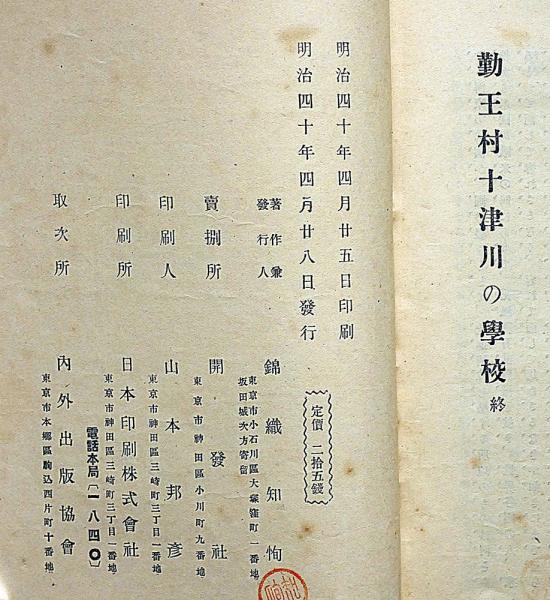 勤王村十津川の學校 終
明治四十年四月廿五日印刷
明治四十年四月廿八日發行
定價 二拾五錢
著作兼
發行人
東京市小石川區大塚窪町一番地
坂田城次方寄留
錦織知恂
賣捌所
東京市神田區小川町九番地
開發社
印刷人
東京市神田區三崎町三丁目一番地
山本邦彥
印刷所
東京市神田區三崎町三丁目一番地
日本印刷株式會社
電話本局〔一八四〇〕
取次所
東京市本鄕區駒込西片町十番地
內外出版協會